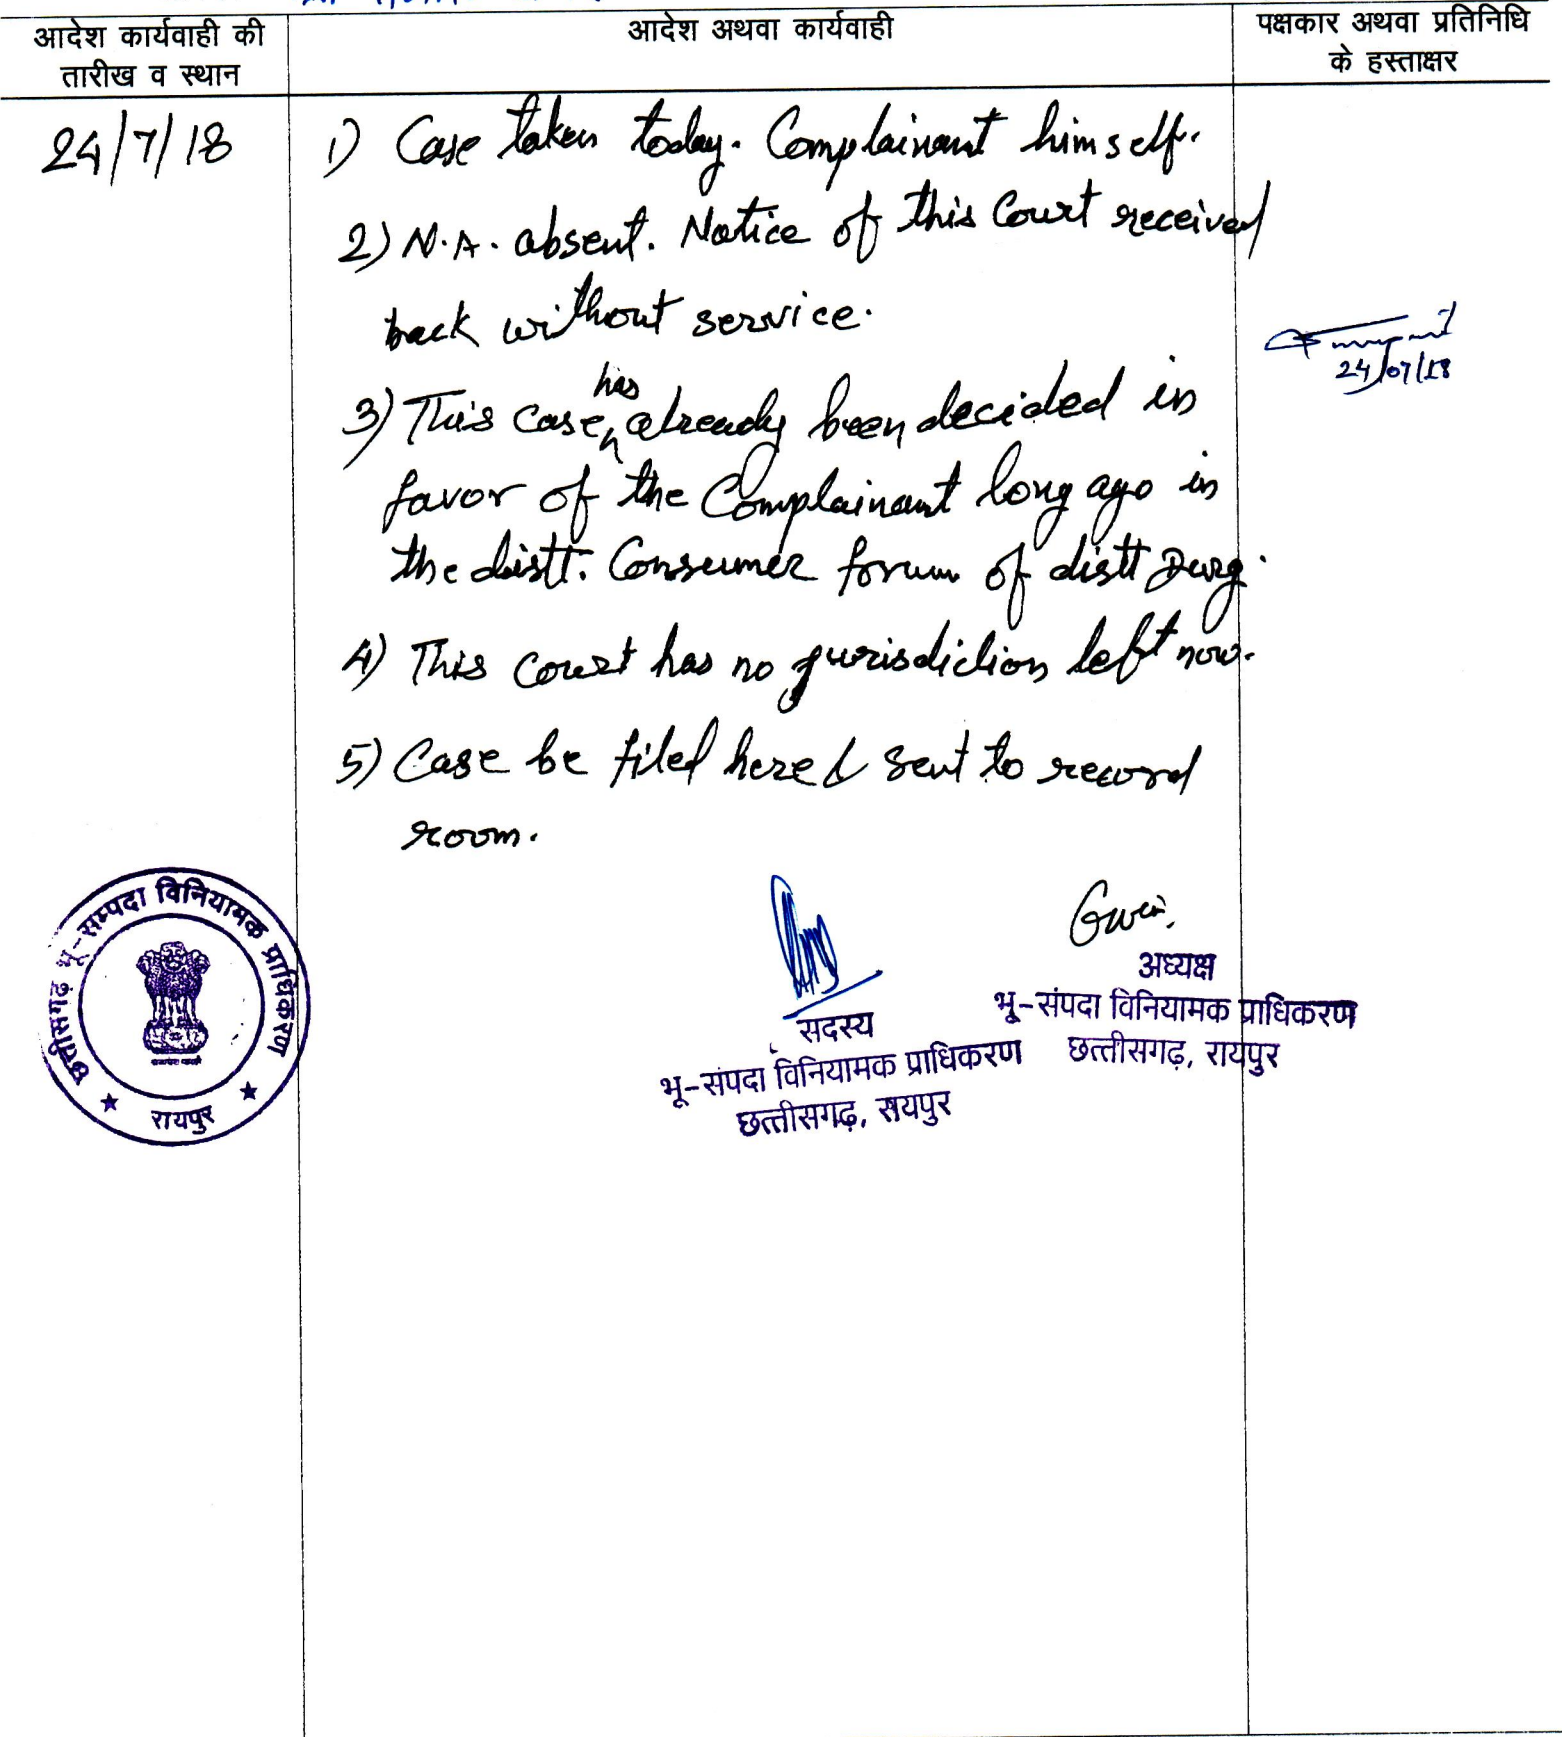 आदेश कार्यवाही की
तारीख व स्थान
आदेश अथवा कार्यवाही
पक्षकार अथवा प्रतिनिधि
के हस्ताक्षर
24/7/18
1) Case taken today. Complainant himself.
2) N.A. absent. Notice of this Court received
back without service.
3) This case has already been decided in
favor of the Complainant long ago in
the distt. Consumer forum of distt Durg.
4) This Court has no jurisdiction left now.
5) Case be filed here & sent to record
room.
24/07/18
छत्तीसगढ़ भू-सम्पदा विनियामक प्राधिकरण
रायपुर
सदस्य
भू-संपदा विनियामक प्राधिकरण
छत्तीसगढ़, रायपुर
अध्यक्ष
भू-संपदा विनियामक प्राधिकरण
छत्तीसगढ़, रायपुर